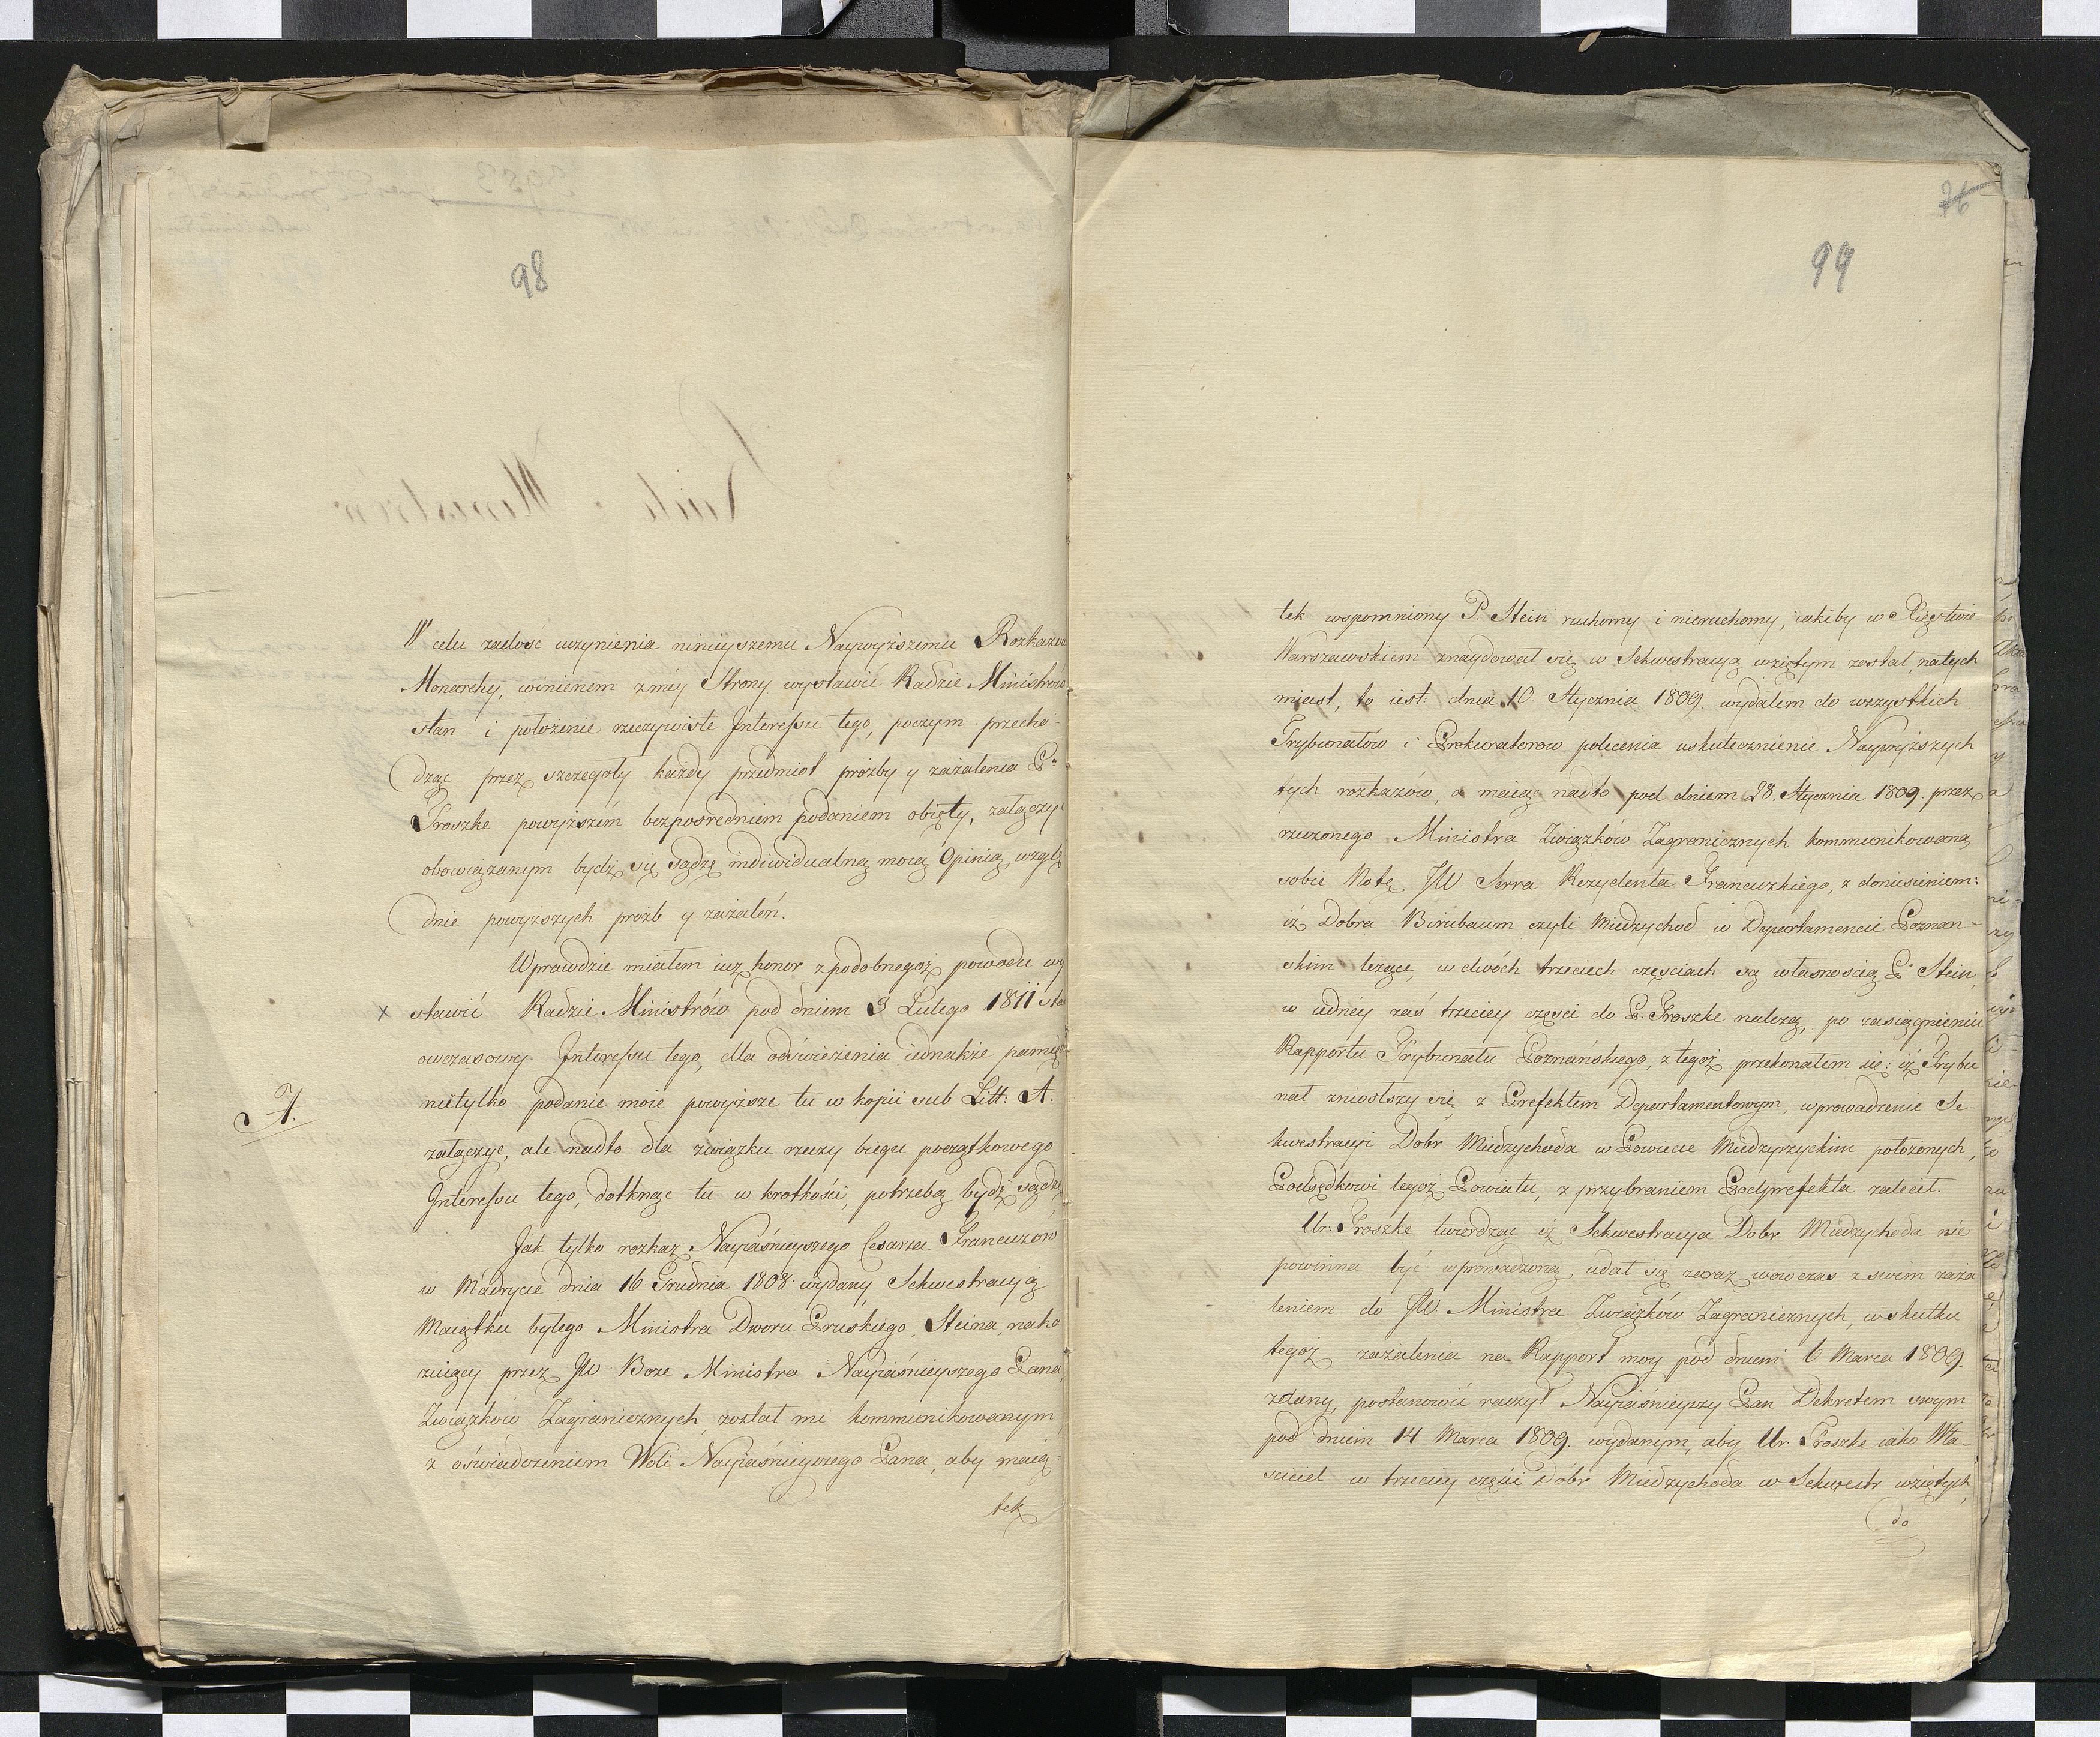 98
W celu zadosć uczynienia ninieyszemu Naywyższemu Rozkazow
Monarchy, winienem zméy Strony wystawić Radzie Ministrow
stan i położenie rzeczywiste Interessu tego, poczym przecho-
dząc przez szczegoły każdy przedmiot prozby y zażalenia P.
Troszke powyższém bezposredniem podaniem obięty, załączyć
obowiązanym bydź się sądzę indiwidualną moią Opinią, wzglę
dnie powyższych prożb y zażaleń.
Wprawdzie miałem iuż honor zpodobnegoż powodu wy
x stawić Radzie Ministrów pod dniem 3 Lutego 1811 sta
owczasowy Interessu tego, dla odświeżenia iednakże pamię
nietylko podanie moie powyższe tu w kopii sub Litt: A.
A.
załączyć, ale nadto dla związku rzeczy biegu początkowego
Interessu tego, dotknąć tu w krotkości, potrzebą bydź sądzę
Jak tylko rozkaz Nayiaśnieyszego Cesarza Francuzow
w Madrycie dnia 16 Grudnia 1808 wydany Sekwestracyą
Maiątku byłego Ministra Dworu Pruskiego, Steina, naka
zuiący przez JW Boze Ministra Nayiaśnieyszego Pana,
Związkow Zagranicznych został mi kommunikowanym
z oświadczeniem Woli Nayiaśnieyszego Pana, aby maią-
tek
76
99
tek wspomniony P. Stein ruchomy i nieruchomy, iakiby w Xięstwie
Warszawskiem znaydował się w Sekwestracyą wziętym został, natych
miast, to iest: dnia 10. Stycznia 1809. wydałem do wszystkich
Trybunałów i Prokuratorow polecenia uskutecznienie Naywyższych
tych rozkazów, a maiąc nadto pod dniem 28. Stycznia 1809. przez
rzeczonego Ministra Związków Zagranicznych kommunikowaną
sobie Notę JW. Serra Rezydenta Francuzkiego, z doniesieniem:
iż Dobra Birnbaum czyli Miedzychod w Departamencie Poznan-
skim leżące, w dwóch trzecich częsciach są własnoscią P. Stein,
w iedney zaś trzeciey częsci do P. Troszke należą, po zasiągnieniu
Rapportu Trybunału Poznańskiego, z tegoż przekonałem się: iż Trybu
nał zniosłszy się z Prefektem Departamentowym, wprowadzenie Se-
kwestracyi Dobr Miedzychoda w Powiecie Miedzyrzyckim położonych,
Podsędkowi tegoż Powiatu, z przybraniem Podprefekta zalecił.
Ur. Troszke twierdząc iż Sekwestracya Dobr Miedzychoda nie
powinna być wprowadzoną, udał się zaraz wowczas z swem zaża
leniem do JW. Ministra Związków Zagranicznych, w skutku
tegoż zażalenia na Rapport moy pod dniem 6. Marca 1809.
zdany, postanowić raczył Nayiaśnieyszy Pan Dekretem swym
pod dniem 14 Marca 1809. wydanym, aby Ur. Troszke iako Wła-
sciciel w trzeciey częsci Dóbr Miedzychoda w Sekwestr wziętych,
do